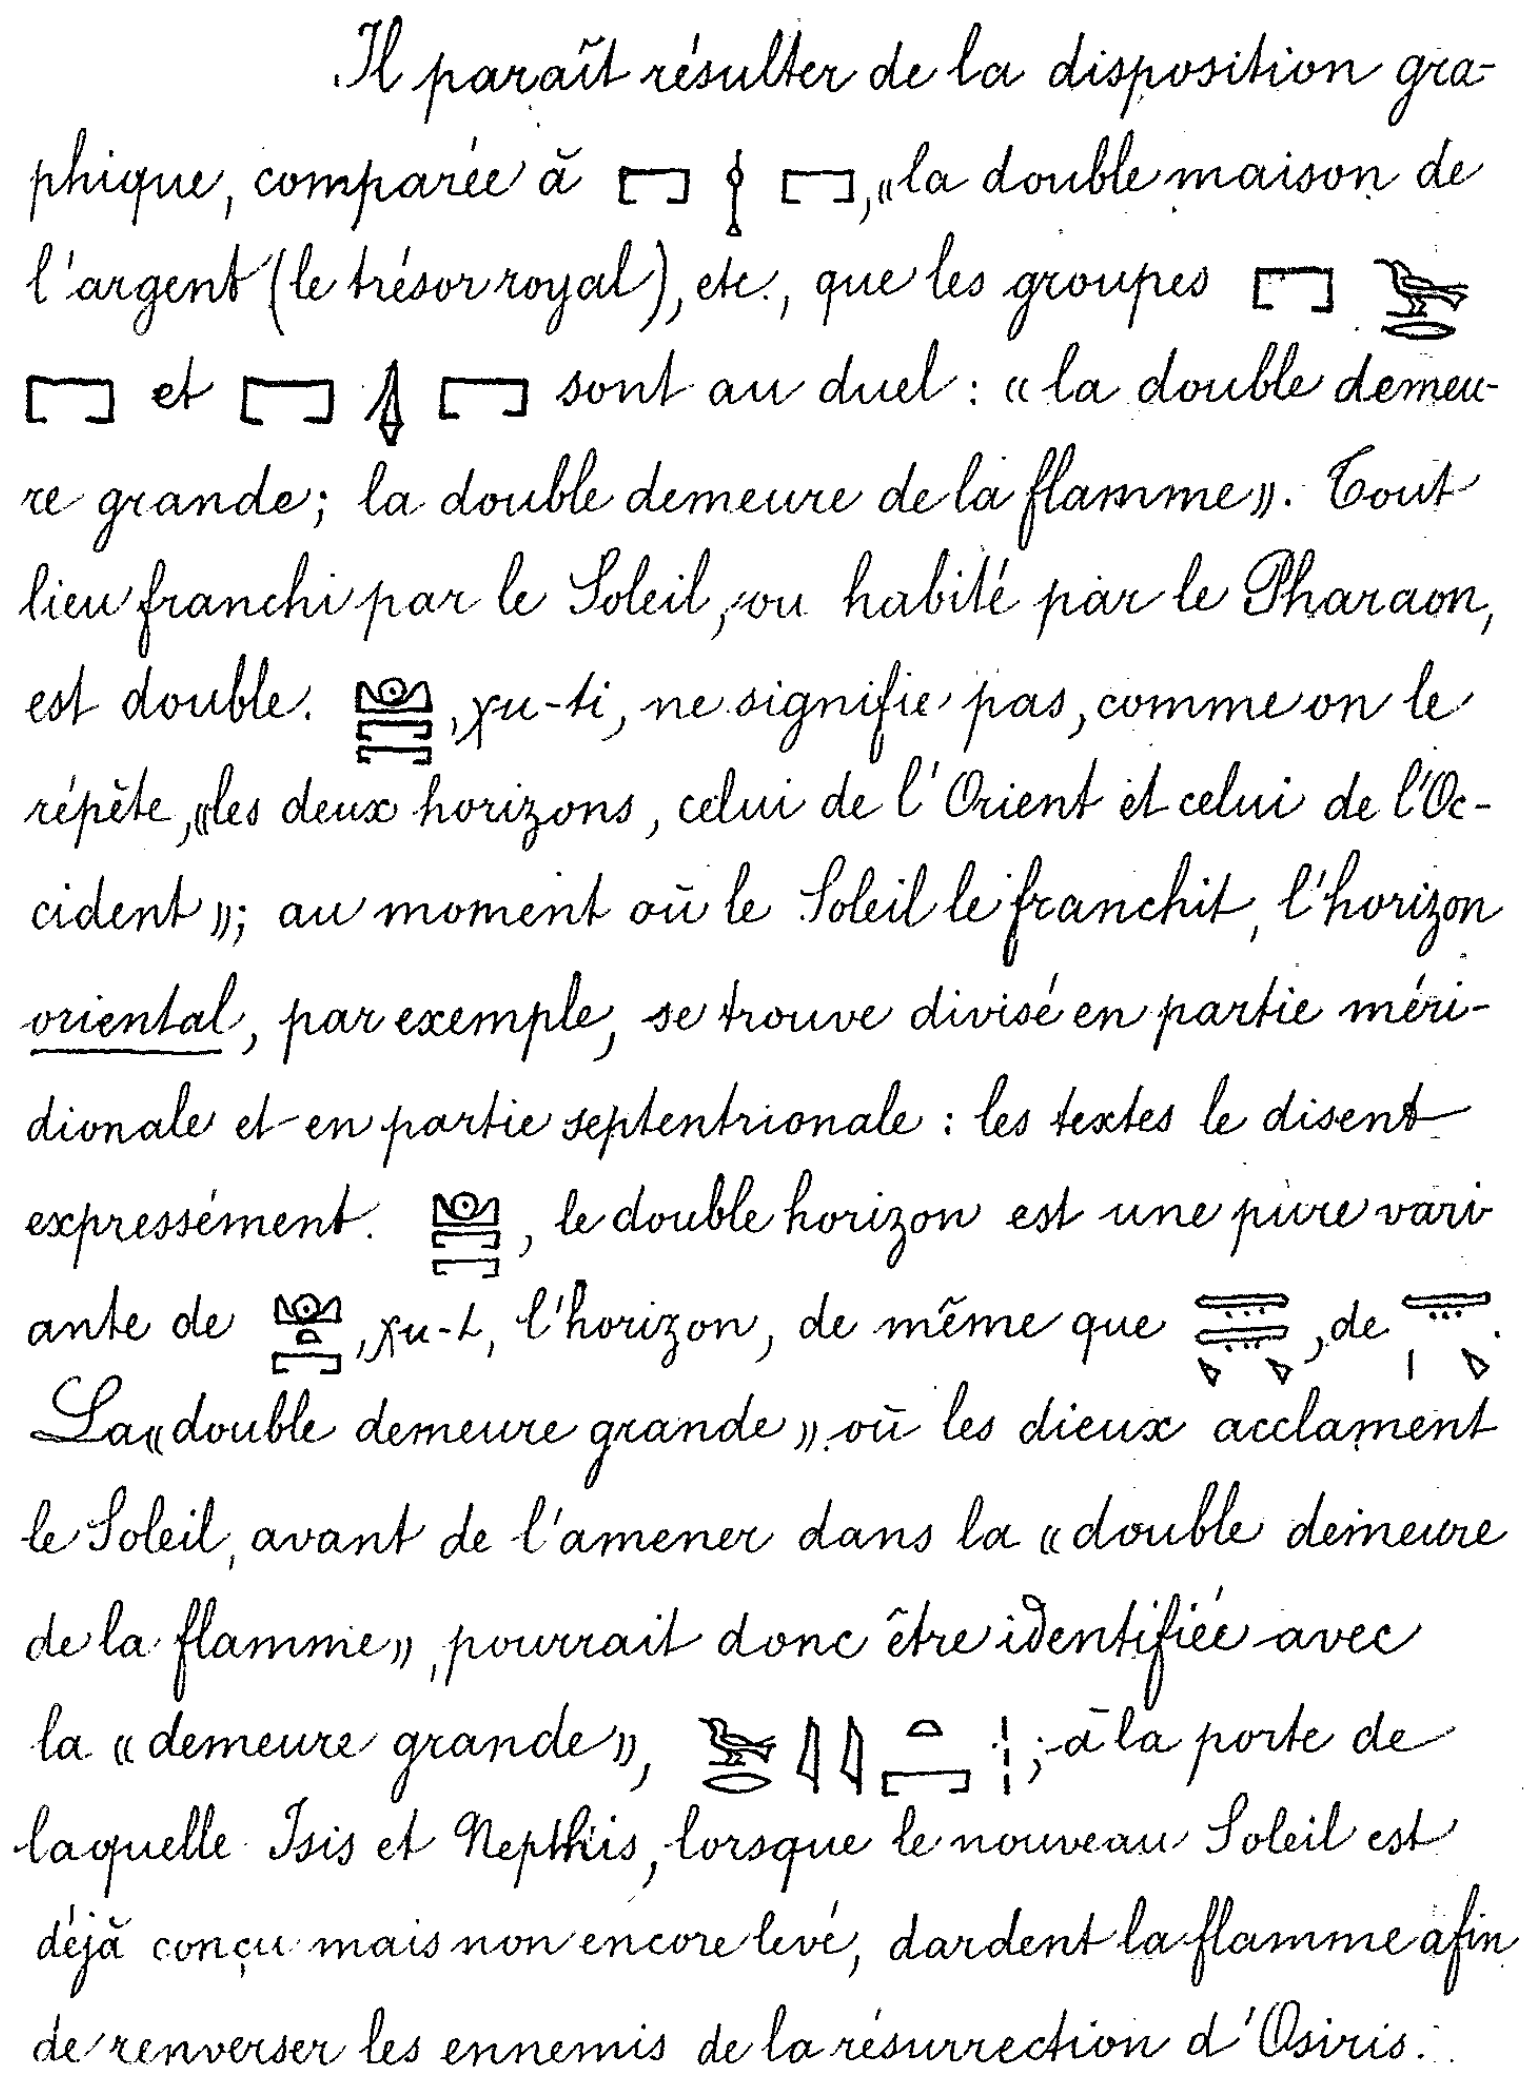 Il paraît résulter de la disposition gra-
phique, comparée à 𓉐 𓌉 𓉐, «la double maison de
l'argent (le trésor royal), etc., que les groupes 𓉐 𓅨𓂋
𓉐 et 𓉐 𓉐 sont au duel : «la double demeu-
re grande; la double demeure de la flamme». Tout
lieu franchi par le Soleil, ou habité par le Pharaon,
est double. 𓈌𓉐𓉐, χu-ti, ne signifie pas, comme on le
répète, «les deux horizons, celui de l'Orient et celui de l'Oc-
cident»; au moment où le Soleil le franchit, l'horizon
oriental, par exemple, se trouve divisé en partie méri-
dionale et en partie septentrionale : les textes le disent
expressément. 𓈌𓉐𓉐, le double horizon est une pure vari
ante de 𓈌𓏏𓉐, χu-t, l'horizon, de même que 𓇾𓇾, de 𓇾.
La «double demeure grande» où les dieux acclament
le Soleil, avant de l'amener dans la «double demeure
de la flamme», pourrait donc être identifiée avec
la «demeure grande», 𓅨𓂋𓇋𓇋𓏏𓉐𓏥; à la porte de
laquelle Isis et Nephthis, lorsque le nouveau Soleil est
déjà conçu mais non encore levé, dardent la flamme afin
de renverser les ennemis de la résurrection d'Osiris.